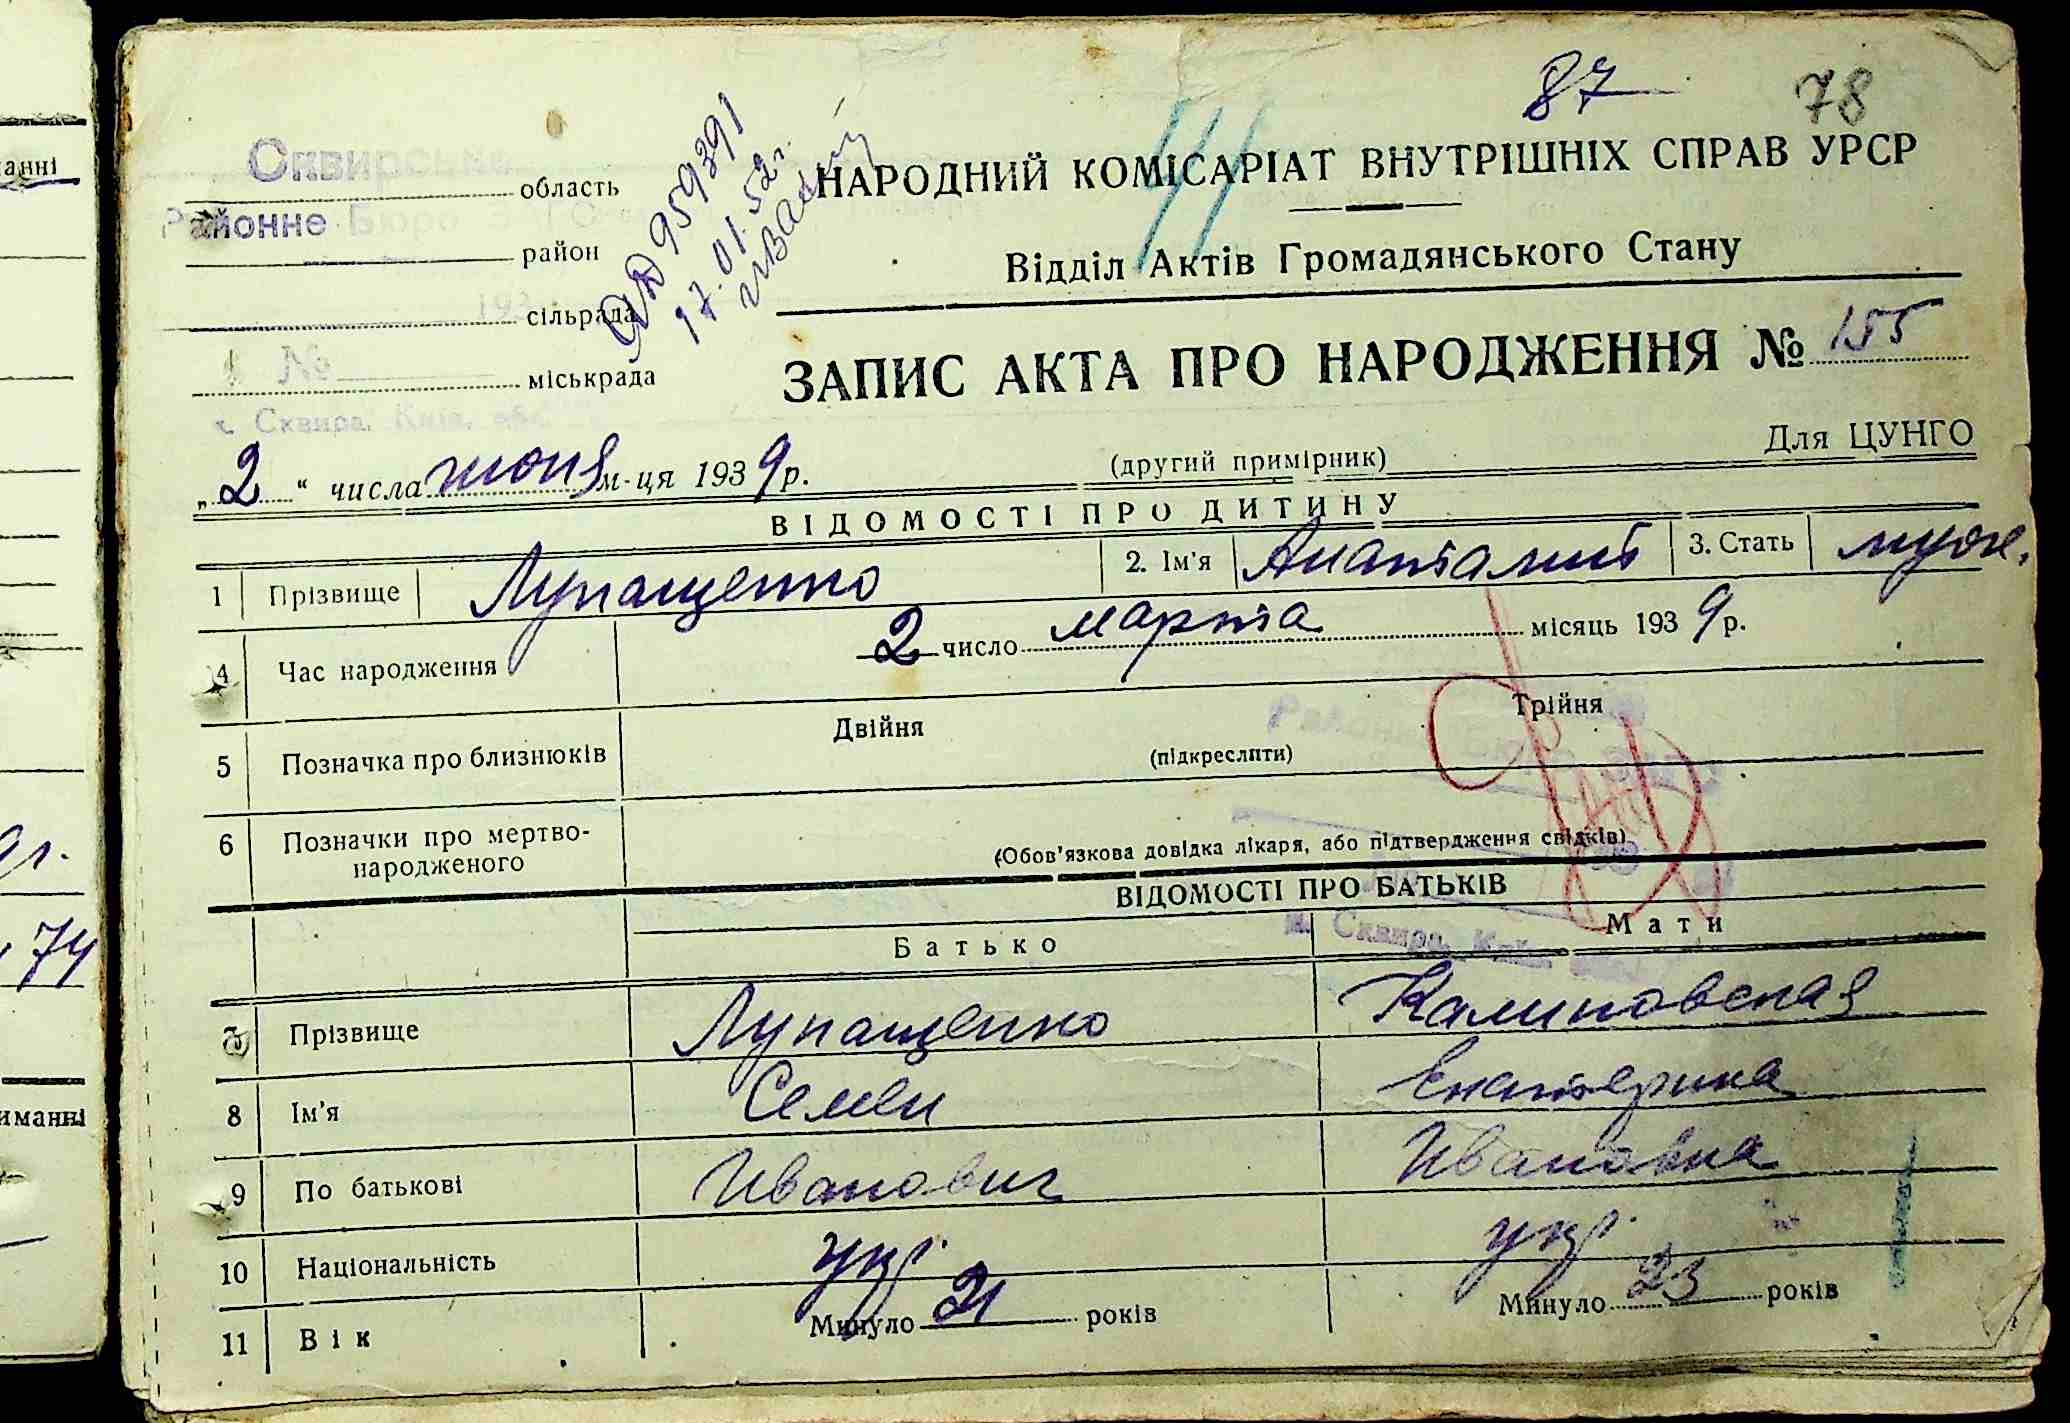 87 78
Сквирське
область
Районне Бюро
район
сільрада
№
міськрада
м. Сквира, Київ. обл.
959391
17.01.52 г.
НАРОДНИЙ КОМІСАРІАТ ВНУТРІШНІХ СПРАВ УРСР
Відділ Актів Громадянського Стану
ЗАПИС АКТА ПРО НАРОДЖЕННЯ № 155
Для ЦУНГО
„2“ числа июня м-ця 1939 р. (другий примірник)
ВІДОМОСТІ ПРО ДИТИНУ
1 Прізвище Лупащенко 2. Ім'я Анатолий 3. Стать муж.
4 Час народження 2 число марта місяць 1939 р.
5 Позначка про близнюків Двійня Трійня
(підкреслити)
6 Позначки про мертво-
народженого
(Обов'язкова довідка лікаря, або підтвердження свідків)
ВІДОМОСТІ ПРО БАТЬКІВ
Батько Мати
7 Прізвище Лупащенко Калиновская
8 Ім'я Семен Екатерина
9 По батькові Иванович Ивановна
10 Національність укр. укр.
11 Вік Минуло 21 років Минуло 23 років
Районне Бюро
м. Сквира, Київ. обл.
анні
74
иманні